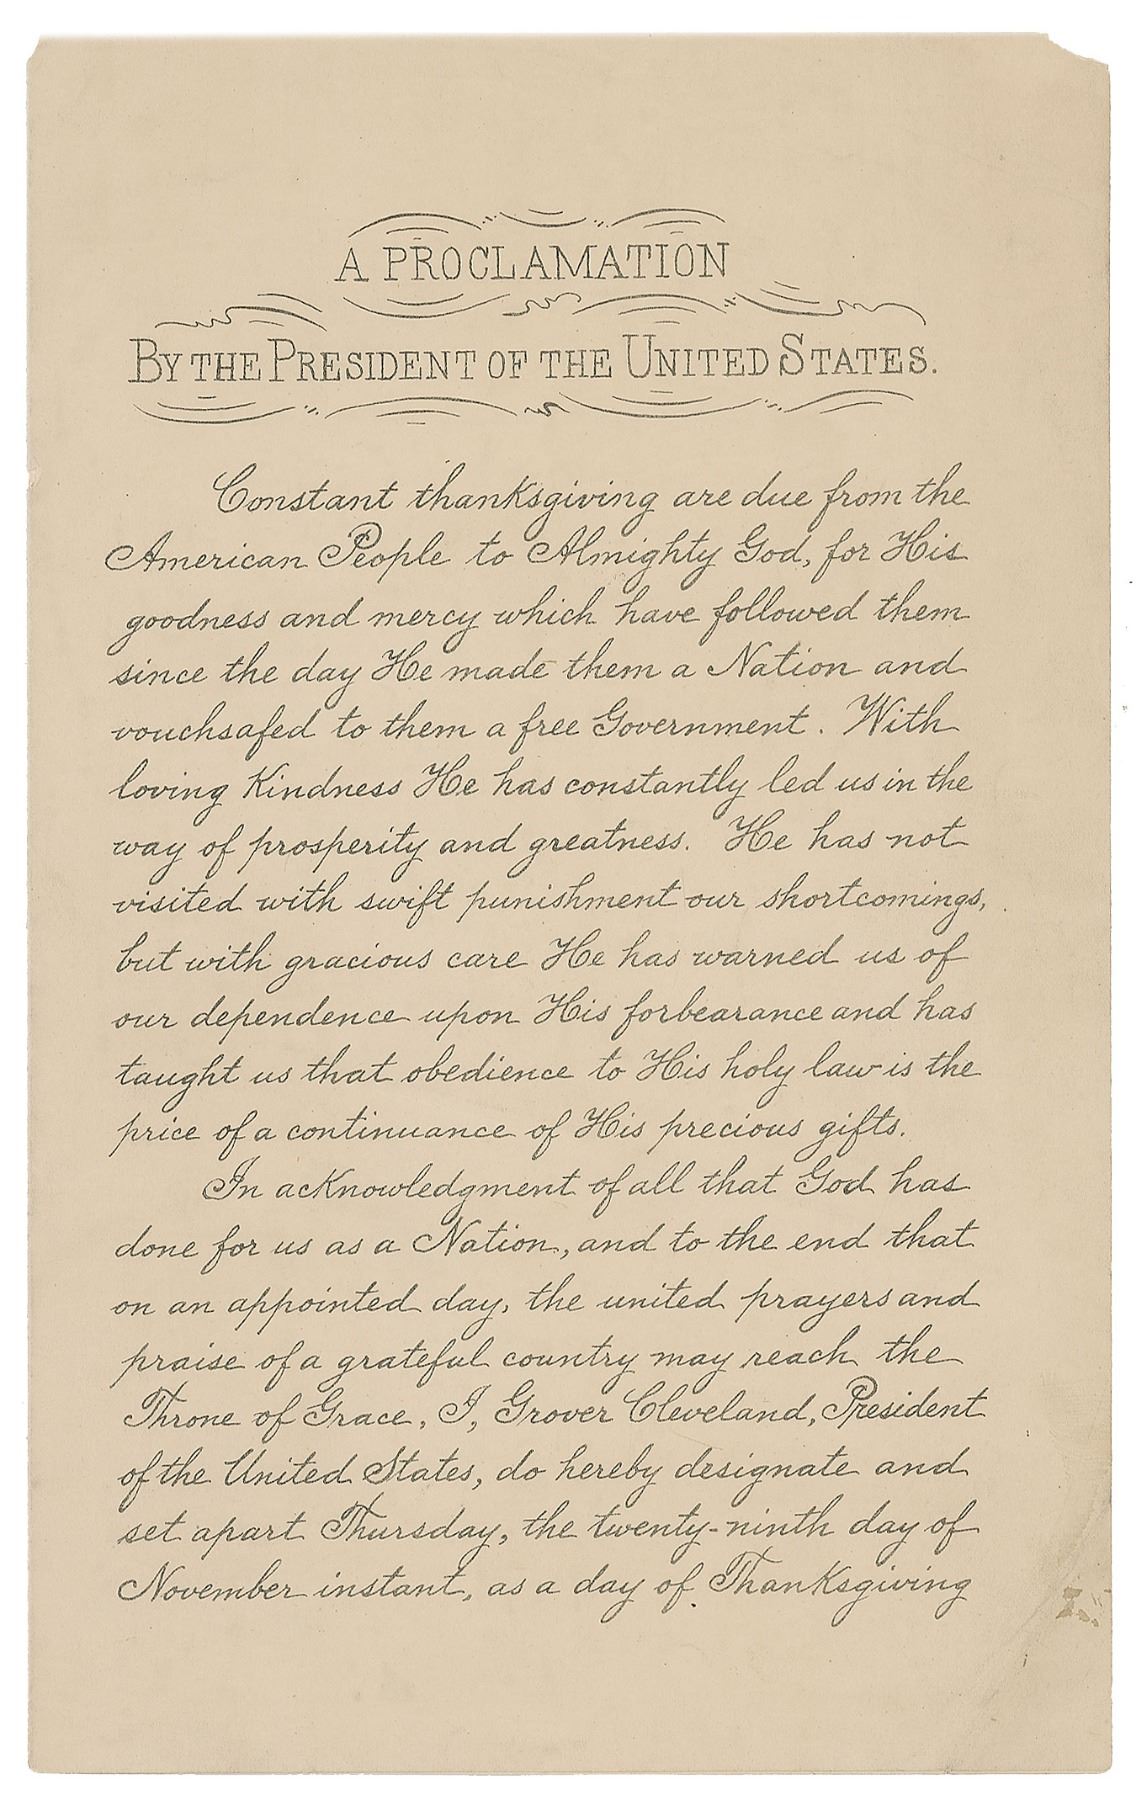 A PROCLAMATION
BY THE PRESIDENT OF THE UNITED STATES.
Constant thanksgiving are due from the
American People to Almighty God, for His
goodness and mercy which have followed them
since the day He made them a Nation and
vouchsafed to them a free Government. With
loving Kindness He has constantly led us in the
way of prosperity and greatness. He has not
visited with swift punishment our shortcomings,
but with gracious care He has warned us of
our dependence upon His forbearance and has
taught us that obedience to His holy law is the
price of a continuance of His precious gifts.
In acknowledgment of all that God has
done for us as a Nation, and to the end that
on an appointed day, the united prayers and
praise of a grateful country may reach the
Throne of Grace, I, Grover Cleveland, President
of the United States, do hereby designate and
set apart Thursday, the twenty-ninth day of
November instant, as a day of Thanksgiving